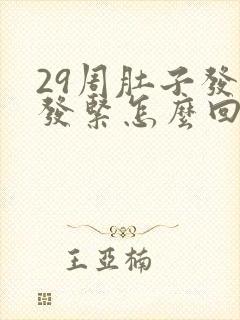 29周肚子發
發緊怎麼回
王亞楠